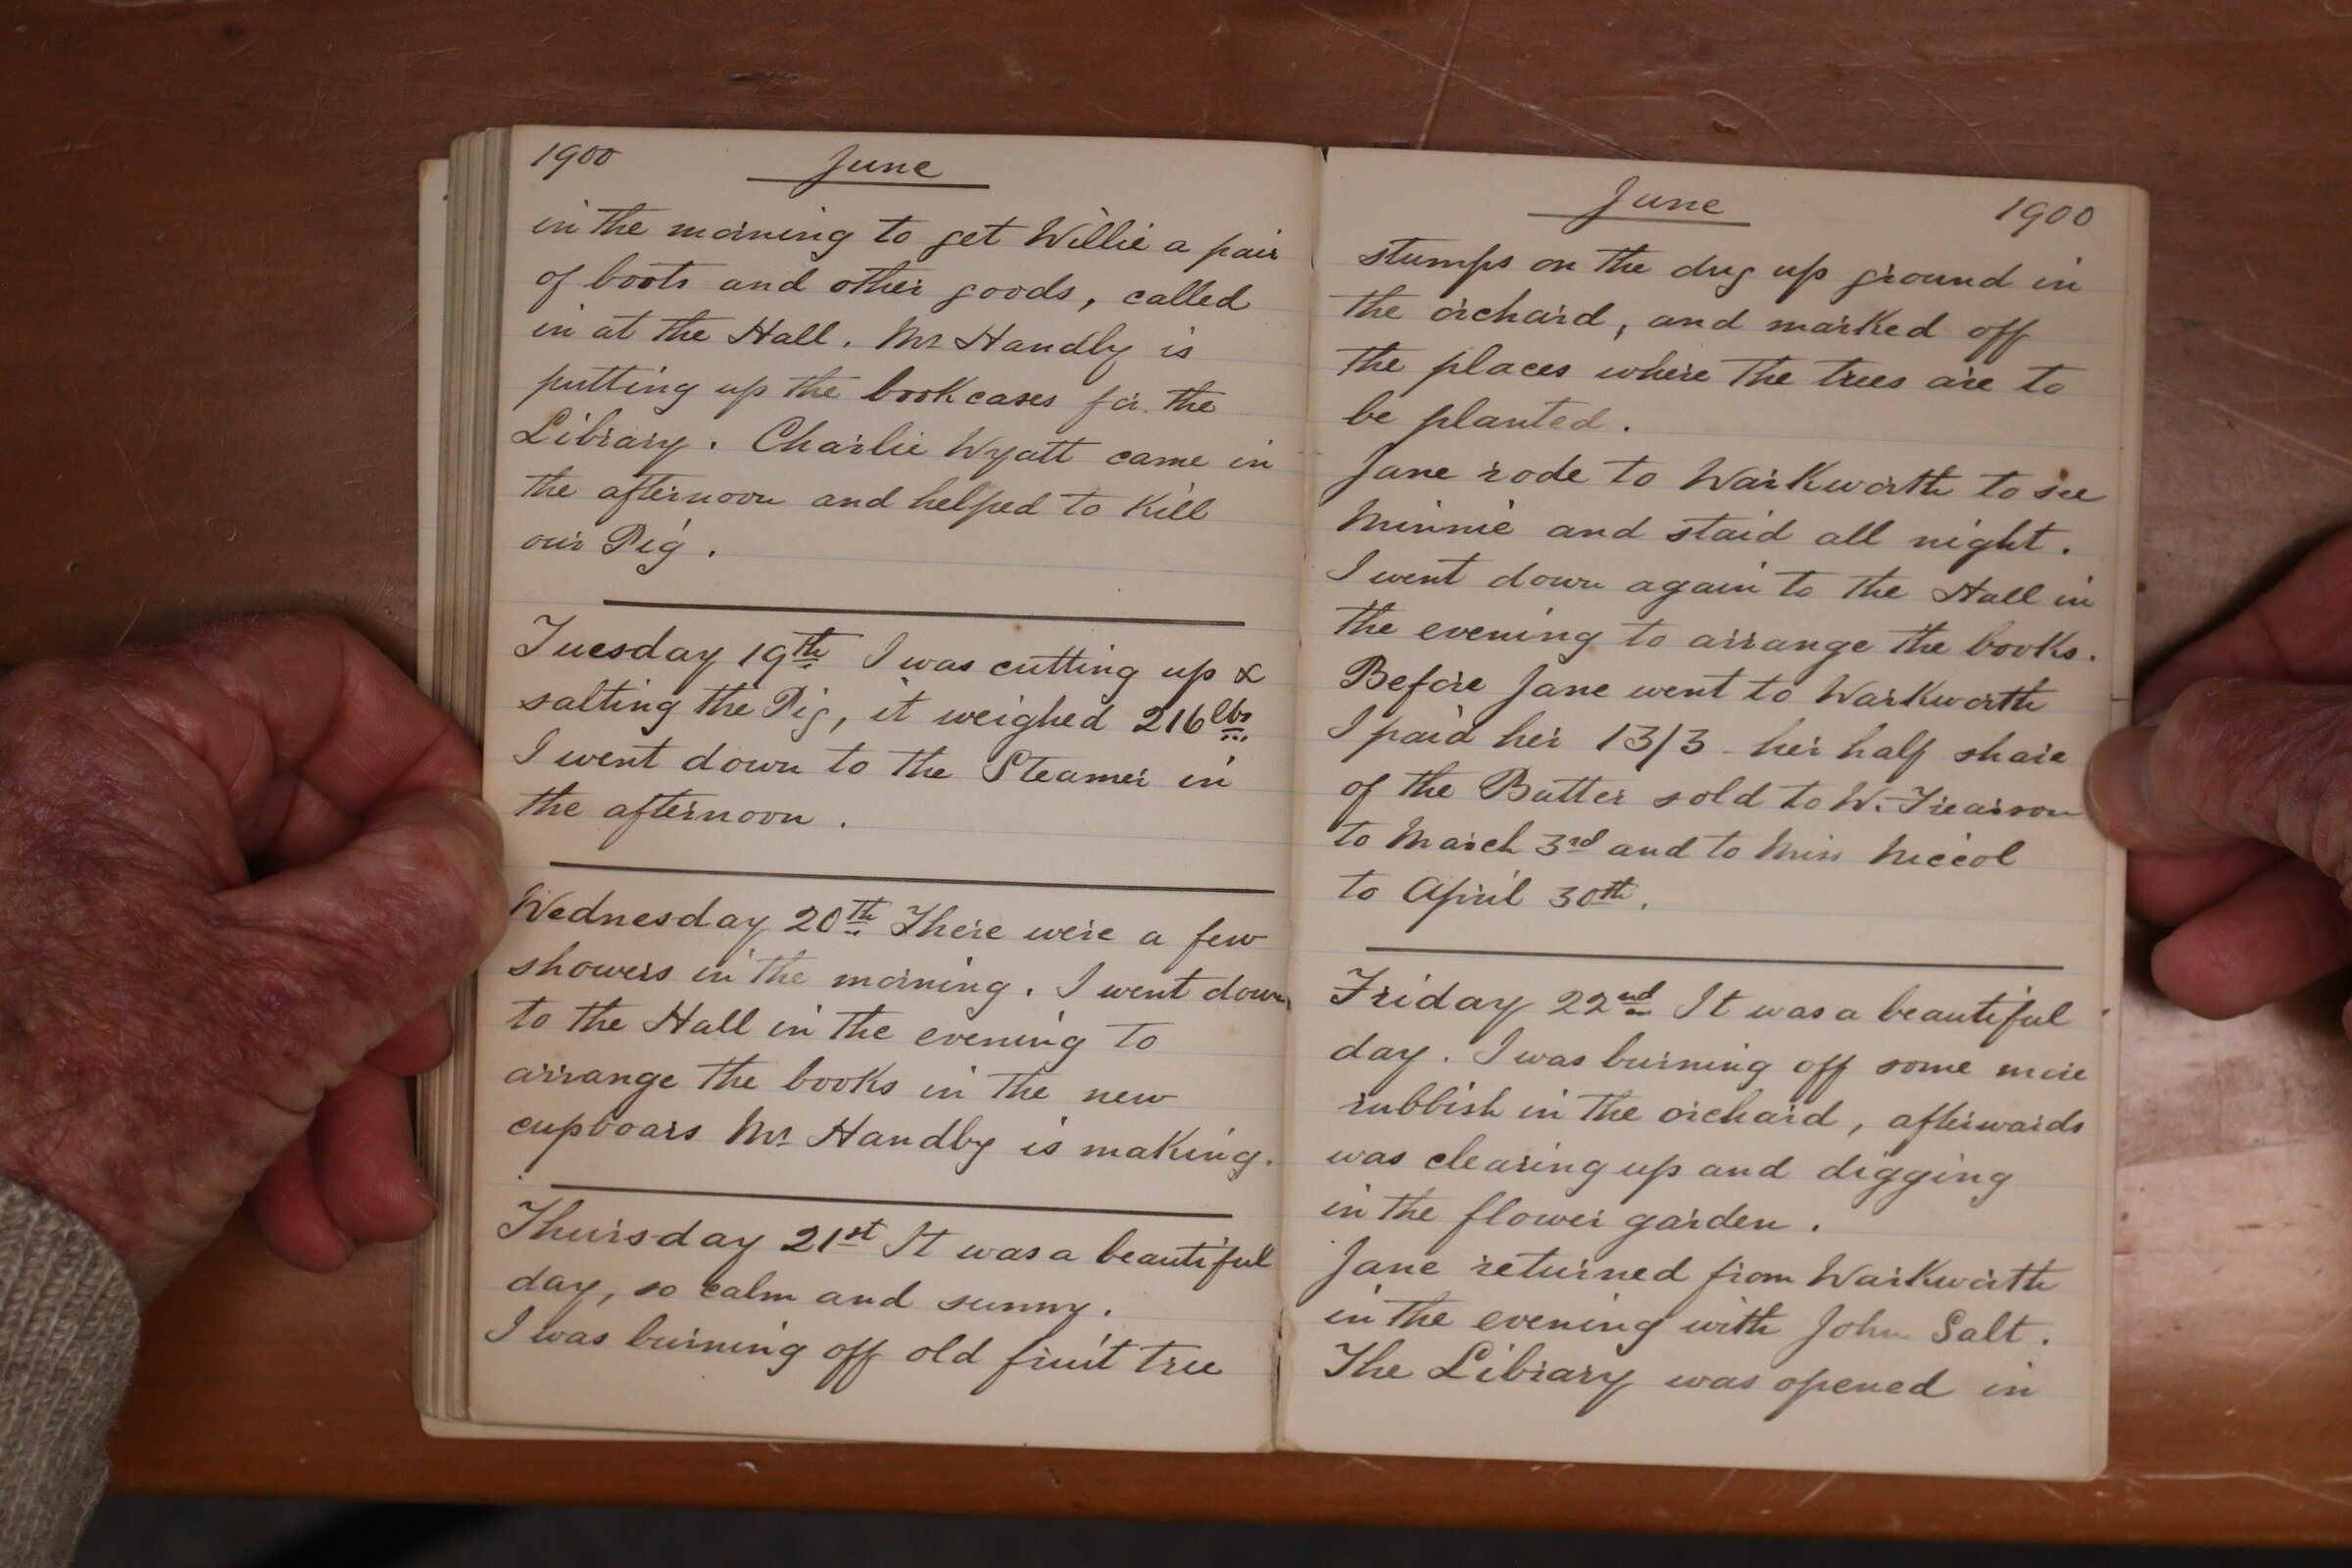 1900 June
in the morning to get Willie a pair
of boots and other goods, called
in at the Hall. Mr Handby is
putting up the bookcases for the
Library. Charlie Wyatt came in
the afternoon and helped to kill
our Pig.
Tuesday 19th I was cutting up &
salting the Pig, it weighed 216 lbs
I went down to the Steamer in
the afternoon.
Wednesday 20th There were a few
showers in the morning. I went down
to the Hall in the evening to
arrange the books in the new
cupboars Mr Handby is making.
Thursday 21st It was a beautiful
day, so calm and sunny.
I was burning off old fruit tree
June 1900
stumps on the dug up ground in
the orchard, and marked off
the places where the trees are to
be planted.
Jane rode to Warkworth to see
Minnie and staid all night.
I went down again to the Hall in
the evening to arrange the books.
Before Jane went to Warkworth
I paid her 13/3 her half share
of the Butter sold to W.
to March 3rd and to Miss Niccol
to April 30th.
Friday 22nd It was a beautiful
day. I was burning off some more
rubbish in the orchard, afterwards
was clearing up and digging
in the flower garden.
Jane returned from Warkworth
in the evening with John Salt.
The Library was opened in